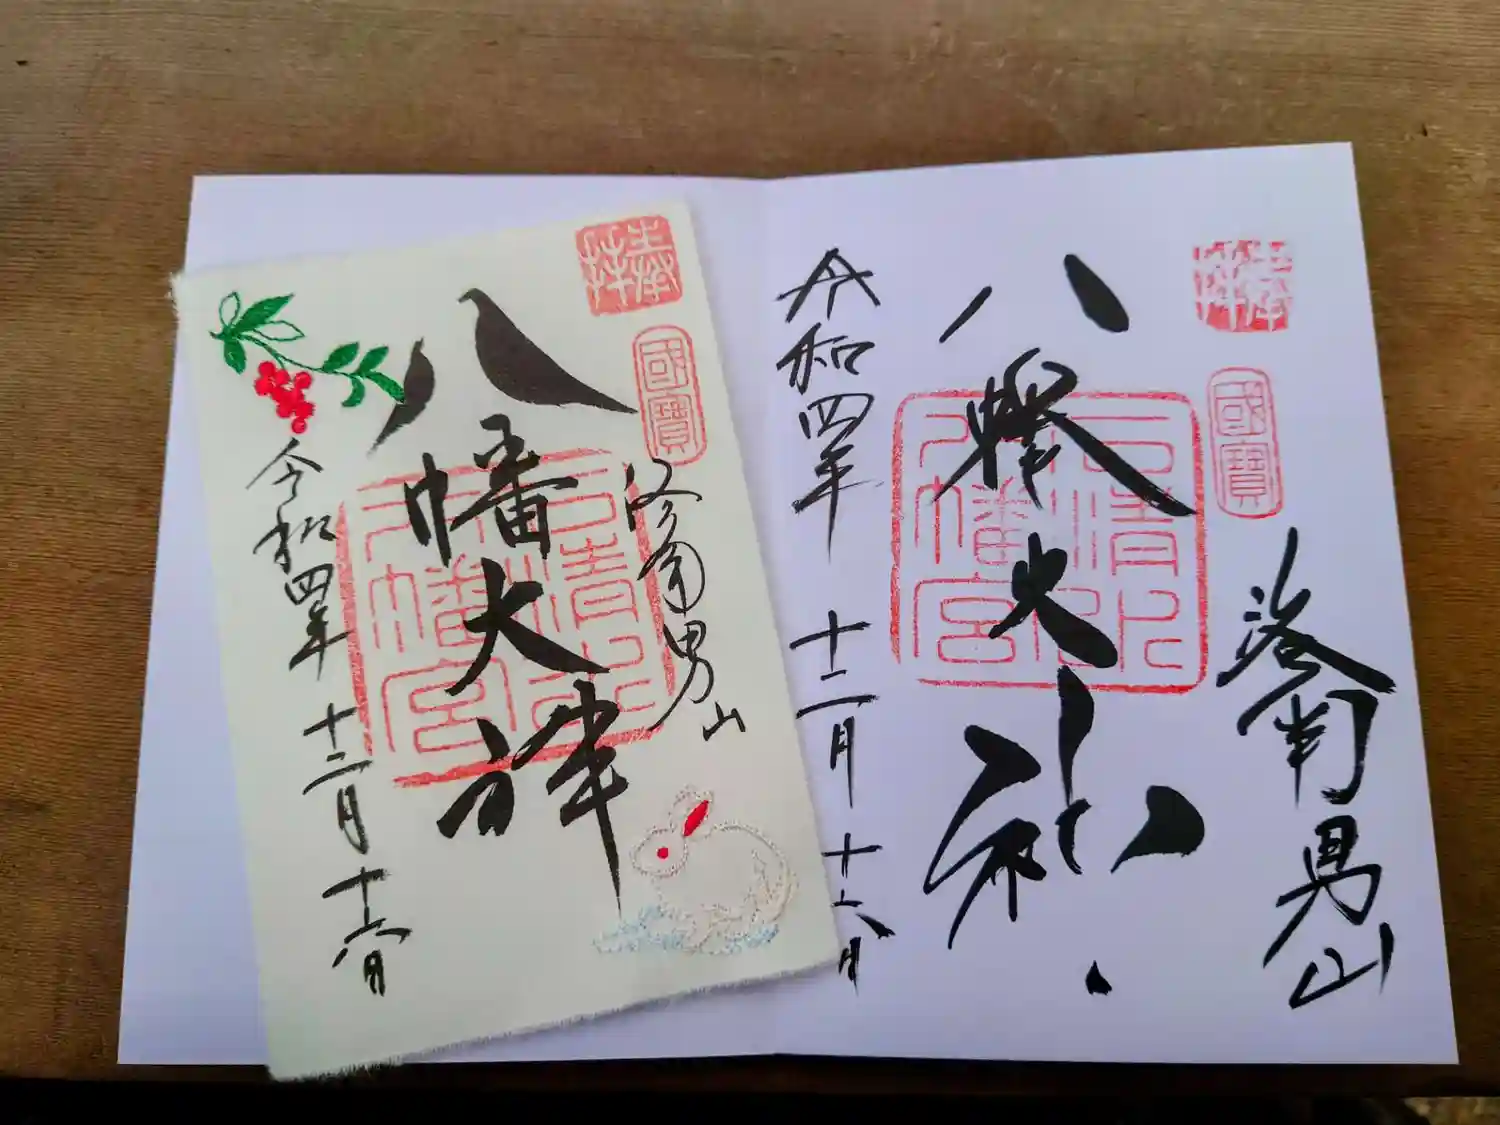 奉拝
國寶
洛南男山
八幡大神
石清水
八幡宮
令和四年十二月十六日
奉拝
國寶
洛南男山
八幡大神
石清水
八幡宮
令和四年十二月十六日